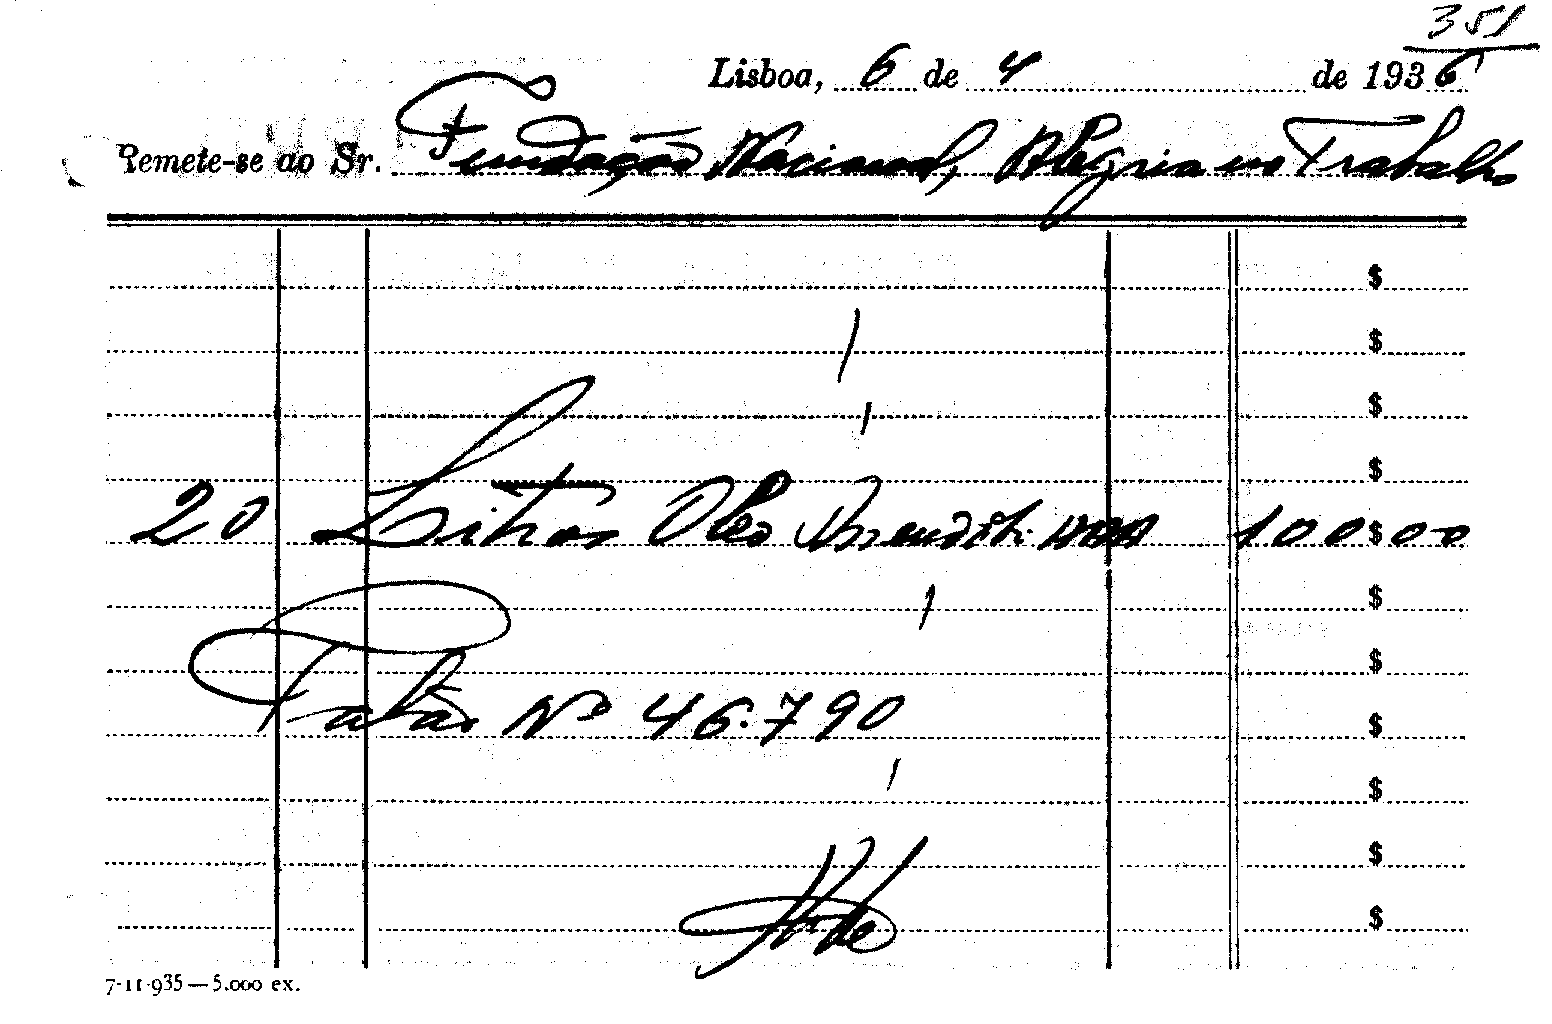 351
Lisboa, 6 de 4 de 1936
Remete-se ao Sr. Fundação Nacional, Alegria no Trabalho
$
$
$
$
20 Litros Oleo 100$00
$
$
Talão Nº 46.790 $
$
$
$
7-11-935—5.000 ex.